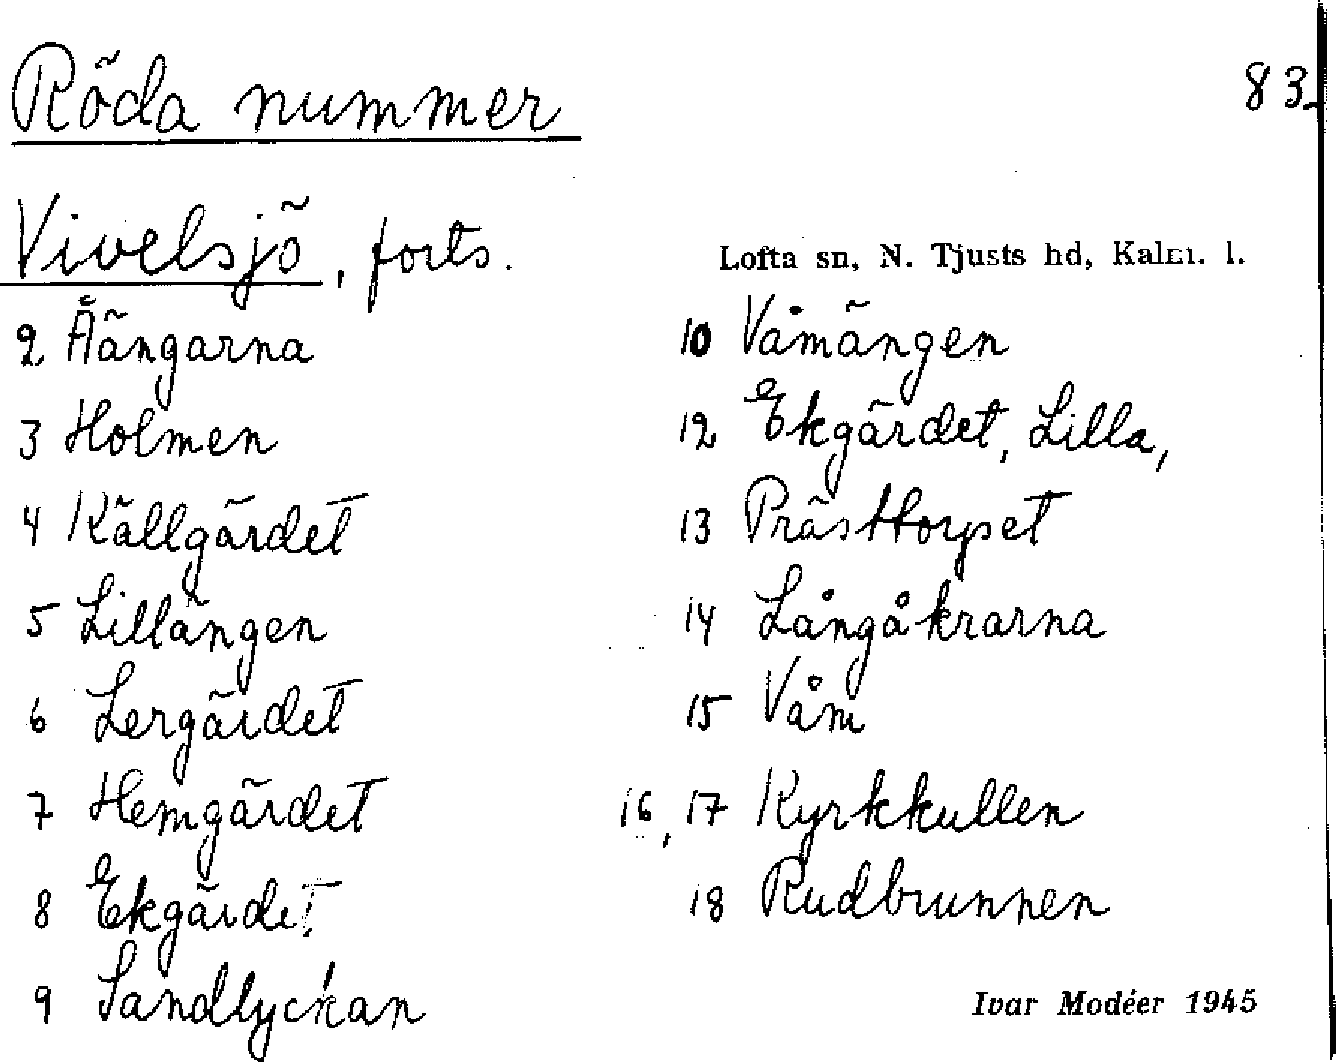 Röda nummer
83.
Vivelsjö, forts.
Lofta sn, N. Tjusts hd, Kalm. l.
2 Åängarna
3 Holmen
4 Källgärdet
5 Lillängen
6 Lergärdet
7 Hemgärdet
8 Ekgärdet
9 Sandlyckan
10 Våmängen
12 Ekgärdet, Lilla,
13 Prästtorpset
14 Långåkrarna
15 Våm
16, 17 Kyrkkullen
18 Rudbrunnen
Ivar Modéer 1945